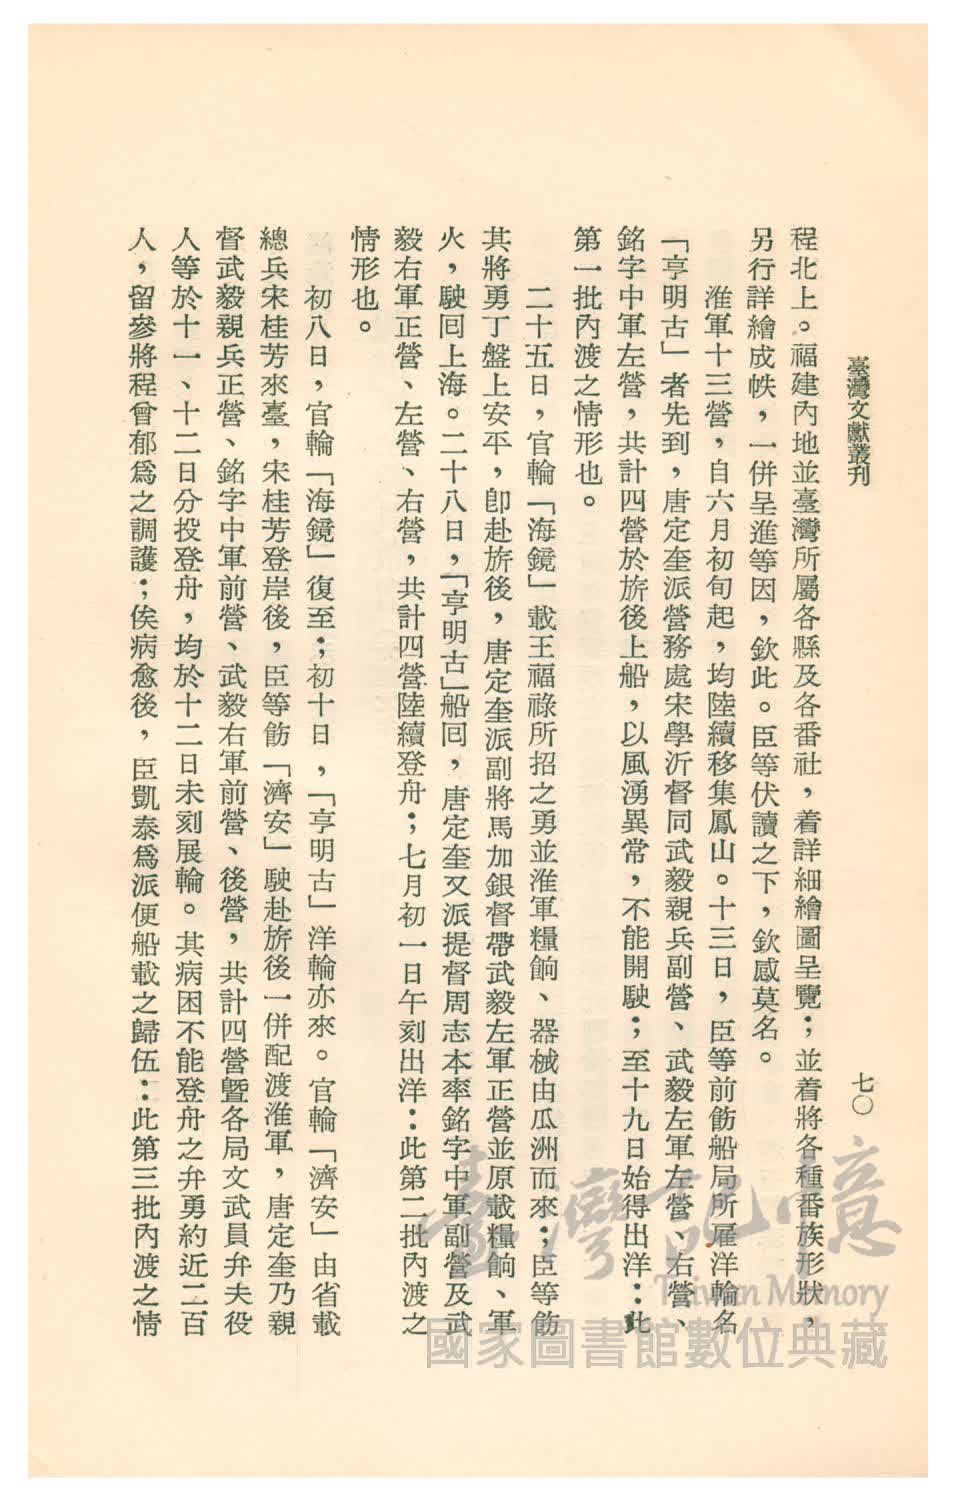 臺灣文獻叢刊
七〇
程北上。福建內地並臺灣所屬各縣及各番社，着詳細繪圖呈覽；並着將各種番族形狀，
另行詳繪成帙，一併呈進等因，欽此。臣等伏讀之下，欽感莫名。
淮軍十三營，自六月初旬起，均陸續移集鳳山。十三日，臣等前飭船局所雇洋輪名
「亨明古」者先到，唐定奎派營務處宋學沂督同武毅親兵副營、武毅左軍左營、右營、
銘字中軍左營，共計四營於旂後上船，以風湧異常，不能開駛；至十九日始得出洋：此
第一批內渡之情形也。
二十五日，官輪「海鏡」載王福祿所招之勇並淮軍糧餉、器械由瓜洲而來；臣等飭
其將勇丁盤上安平，卽赴旂後，唐定奎派副將馬加銀督帶武毅左軍正營並原載糧餉、軍
火，駛囘上海。二十八日，「亨明古」船囘，唐定奎又派提督周志本率銘字中軍副營及武
毅右軍正營、左營、右營，共計四營陸續登舟；七月初一日午刻出洋：此第二批內渡之
情形也。
初八日，官輪「海鏡」復至；初十日，「亨明古」洋輪亦來。官輪「濟安」由省載
總兵宋桂芳來臺，宋桂芳登岸後，臣等飭「濟安」駛赴旂後一併配渡淮軍，唐定奎乃親
督武毅親兵正營、銘字中軍前營、武毅右軍前營、後營，共計四營曁各局文武員弁夫役
人等於十一、十二日分投登舟，均於十二日未刻展輪。其病困不能登舟之弁勇約近二百
人，留參將程曾郁爲之調護；俟病愈後，臣凱泰爲派便船載之歸伍：此第三批內渡之情
臺灣記憶
Taiwan Memory
國家圖書館數位典藏